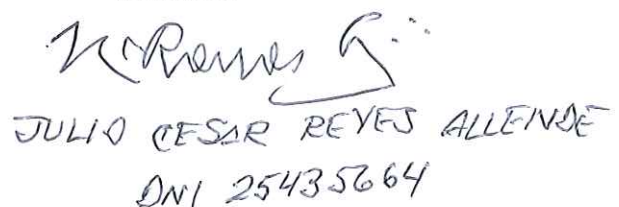 JULIO CESAR REYES ALLENDE
DNI 25435664